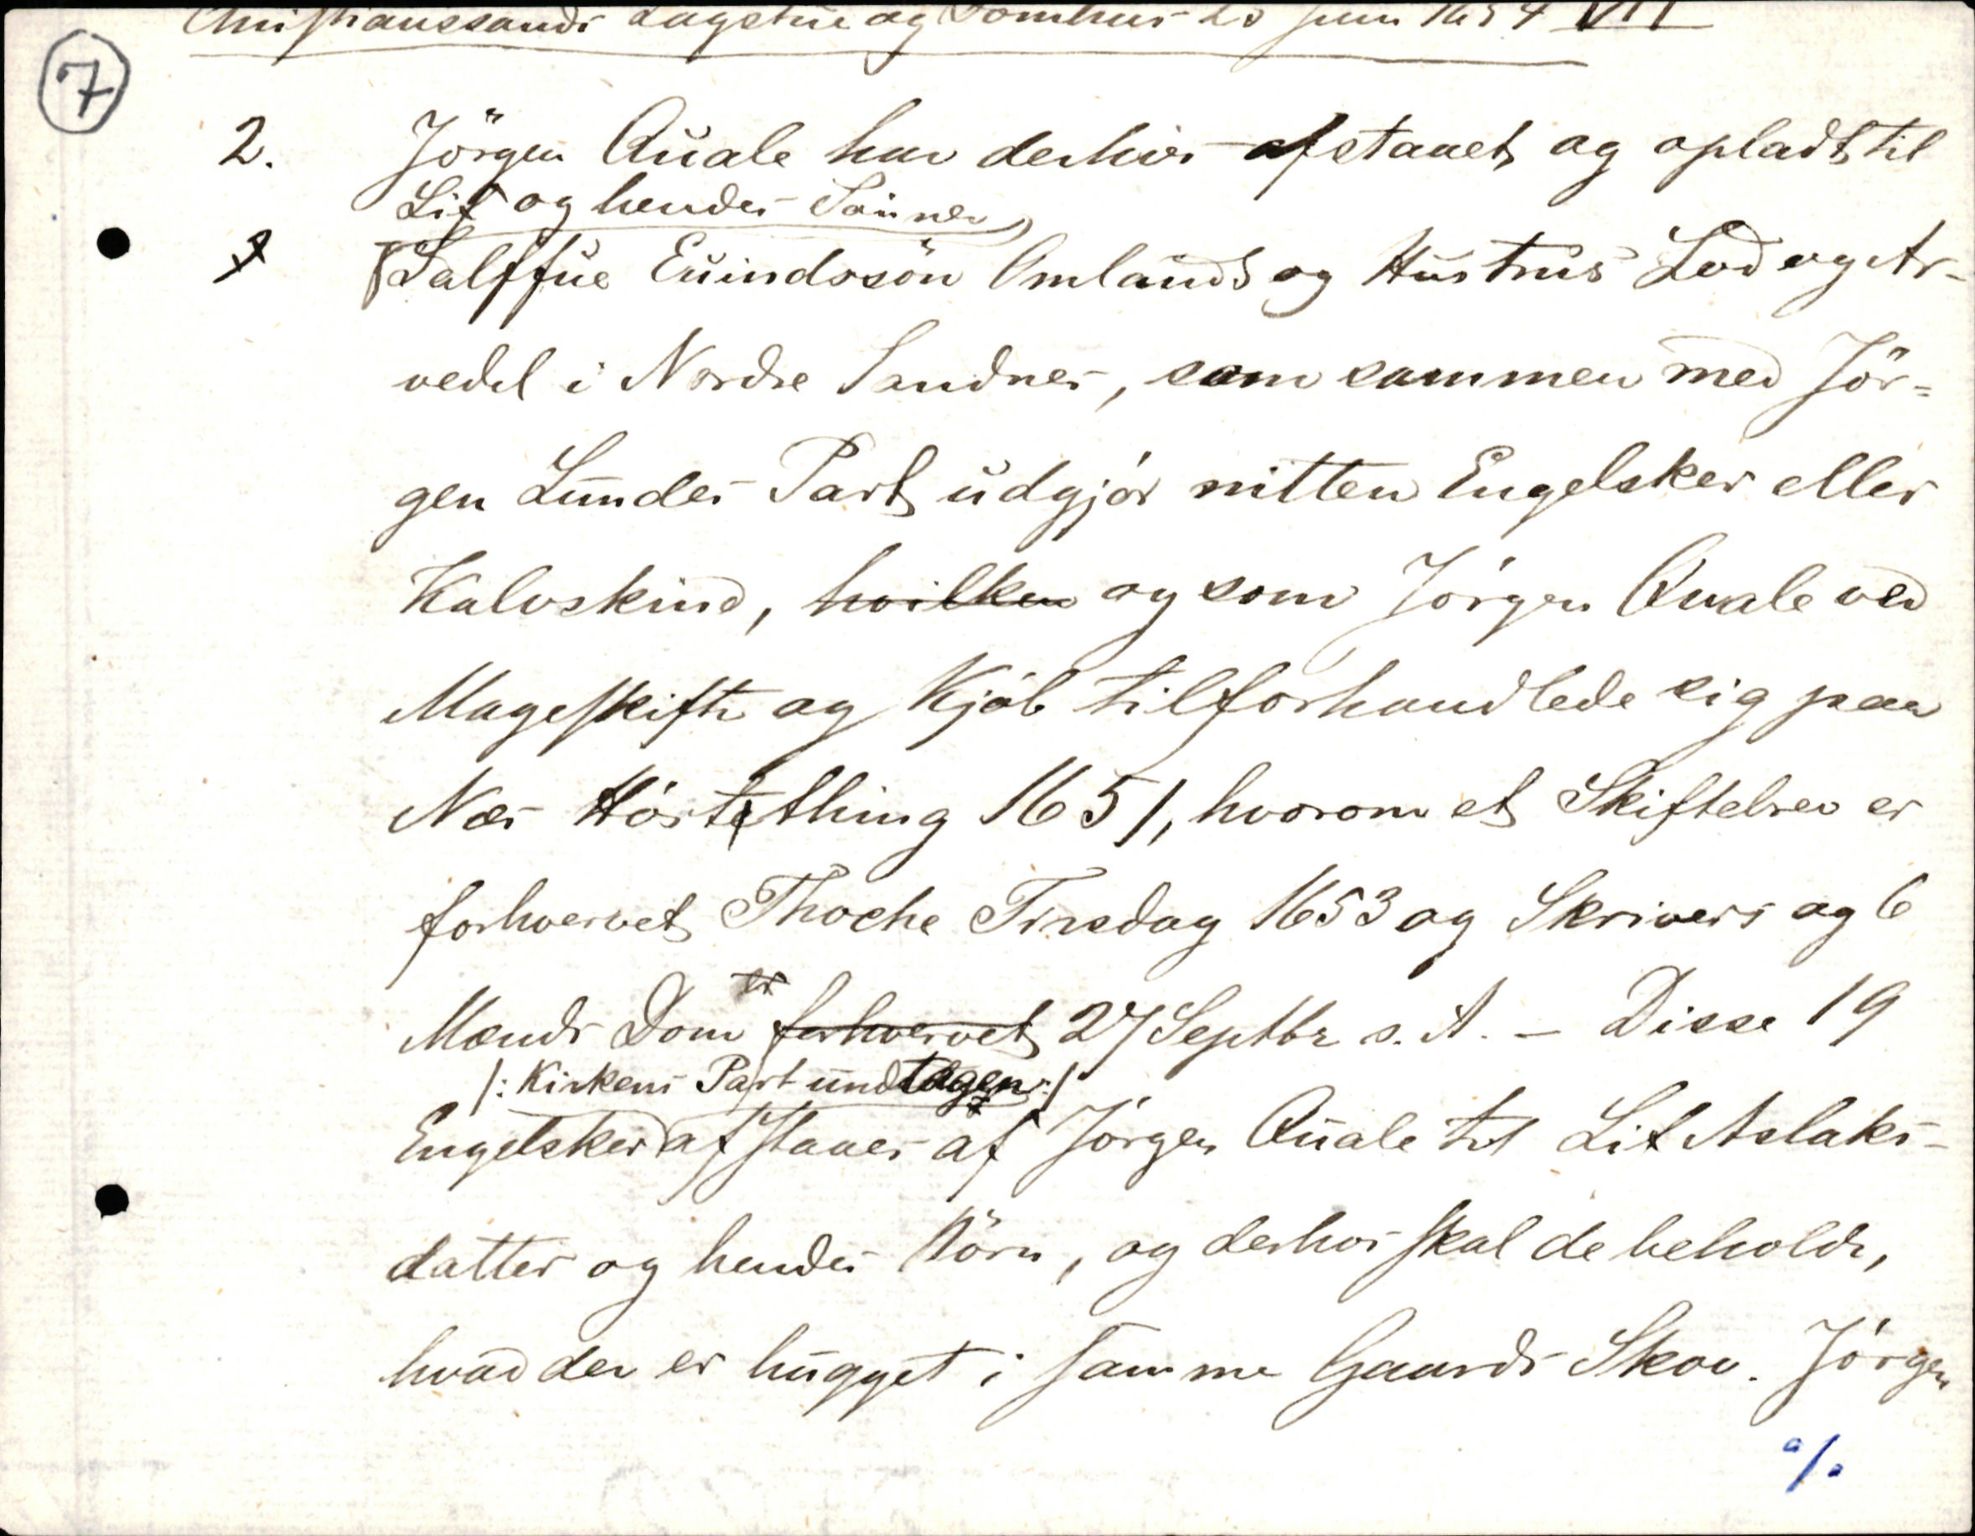 Christianssands Lagstue og Domhus 20 Juni 1654 VII
7
2. Jörgen Quale har derhos afstanet og opladt til
Lif og hendes Sönner
Salffue Euindssön Omlands og Hustrus Lod og Ar-
vedel i Nordre Sandnes, som sammen med Jör-
gen Lundes Part udgjør nitten Engelsker eller
Kalvskind, hvilken og som Jörgen Quale ved
Mageskifte og Kjøb tilforhandlede sig paa
Nes Høstething 1651, hvorom et Skiftebrev er
forhvervet Thoche Tirsdag 1653 og Skrivers og 6
Mænds Dom er forhvervet 27 Septbr s. A. - Disse 19
/: Kirkens Part undtagen :/
Engelsker afstaaes af Jörgen Quale til Lif Aslaks-
datter og hendes Börn, og derhos skal de beholde,
hvad der er hugget i samme Gaards Skov. Jörgen
%